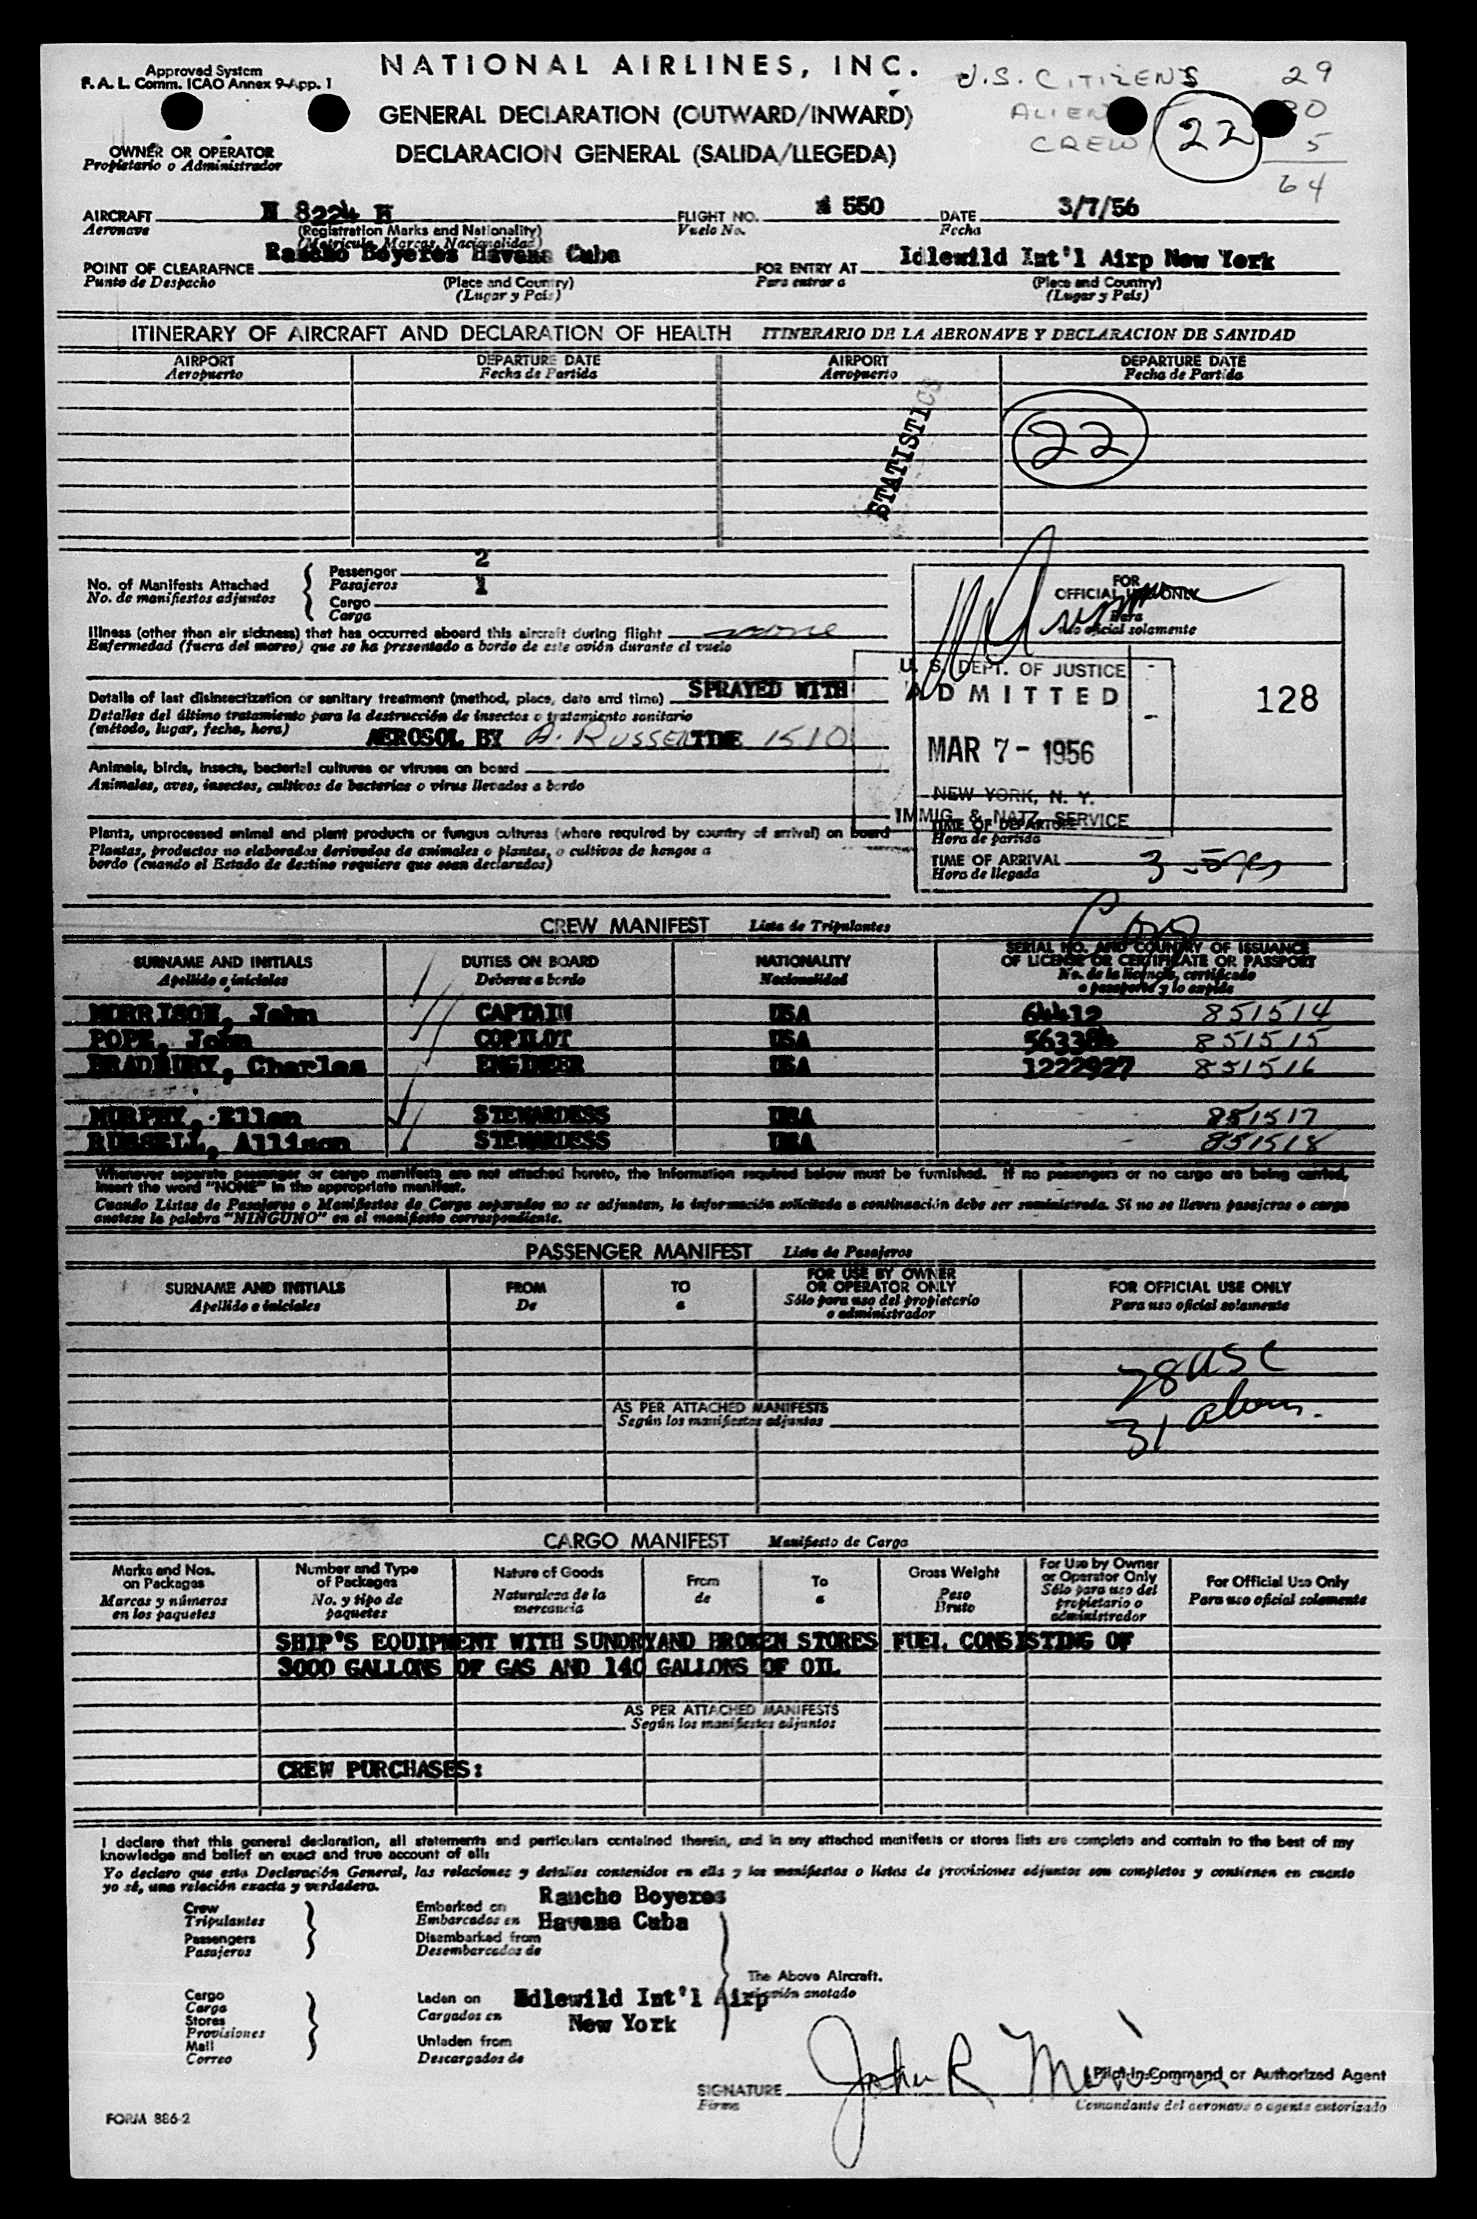 Approved System
F. A. L. Comm. ICAO Annex 9-App. 1
NATIONAL AIRLINES, INC.
GENERAL DECLARATION (OUTWARD/INWARD)
DECLARACION GENERAL (SALIDA/LLEGEDA)
U.S. CITIZENS 29
ALIEN 30
CREW 5
64
22
OWNER OR OPERATOR
Propietario o Administrador
AIRCRAFT N 8224 H FLIGHT NO. 550 DATE 3/7/56
Aeronave (Registration Marks and Nationality) Vuelo No. Fecha
(Matricula, Marcas, Nacionalidad)
POINT OF CLEARAFNCE Rancho Boyeros Havana Cuba FOR ENTRY AT Idlewild Int'l Airp New York
Punto de Despacho (Place and Country) Para entrar a (Place and Country)
(Lugar y Pais) (Lugar y Pais)
ITINERARY OF AIRCRAFT AND DECLARATION OF HEALTH ITINERARIO DE LA AERONAVE Y DECLARACION DE SANIDAD
AIRPORT DEPARTURE DATE AIRPORT DEPARTURE DATE
Aeropuerto Fecha de Partida Aeropuerto Fecha de Partida
STATISTICS
22
No. of Manifests Attached
No. de manifiestos adjuntos
Passenger 2
Pasajeros 1
Cargo
Carga
Illness (other than air sickness) that has occurred aboard this aircraft during flight none
Enfermedad (fuera del mareo) que se ha presentado a bordo de este avión durante el vuelo
Details of last disinsectization or sanitary treatment (method, place, date and time) SPRAYED WITH
Detalles del último tratamiento para la destrucción de insectos o tratamiento sanitario
(método, lugar, fecha, hora) AEROSOL BY A. RUSSELL TIME 1510
Animals, birds, insects, bacterial cultures or viruses on board
Animales, aves, insectos, cultivos de bacterias o virus llevados a bordo
Plants, unprocessed animal and plant products or fungus cultures (where required by country of arrival) on board
Plantas, productos no elaborados derivados de animales o plantas, o cultivos de hongos a
bordo (cuando el Estado de destino requiere que sean declarados)
FOR
OFFICIAL USE ONLY
Para
uso oficial solamente
U. S. DEPT. OF JUSTICE
ADMITTED
128
MAR 7 - 1956
NEW YORK, N. Y.
IMMIG. & NATZ. SERVICE
TIME OF DEPARTURE
Hora de partida
TIME OF ARRIVAL
Hora de llegada
CREW MANIFEST Lista de Tripulantes
SURNAME AND INITIALS DUTIES ON BOARD NATIONALITY SERIAL NO. AND COUNTRY OF ISSUANCE
OF LICENSE OR CERTIFICATE OR PASSPORT
Apellido e iniciales Deberes a bordo Nacionalidad No. de la licencia, certificado
o pasaporte y lo expide
MORRISON, John CAPTAIN USA 64412 851514
POPE, John COPILOT USA 563384 851515
BRADBURY, Charles ENGINEER USA 1222927 851516
MURPHY, Ellen STEWARDESS USA 851517
RUSSELL, Allison STEWARDESS USA 851518
Whenever separate passenger or cargo manifests are not attached hereto, the information required below must be furnished. If no passengers or no cargo are being carried,
insert the word "NONE" in the appropriate manifest.
Cuando Listas de Pasajeros o Manifestos de Carga separados no se adjuntan, la información solicitada a continuación debe ser suministrada. Si no se lleven pasajeros o carga
anotese la palabra "NINGUNO" en el manifiesto correspondiente.
PASSENGER MANIFEST Lista de Pasajeros
SURNAME AND INITIALS FROM TO FOR USE BY OWNER
OR OPERATOR ONLY FOR OFFICIAL USE ONLY
Apellido e iniciales De a Sólo para uso del propietario
o administrador Para uso oficial solamente
28 USC
31 aliens.
AS PER ATTACHED MANIFESTS
Según los manifiestos adjuntos
CARGO MANIFEST Manifiesto de Carga
Marks and Nos.
on Packages
Marcas y números
en los paquetes
Number and Type
of Packages
No. y tipo de
paquetes
Nature of Goods
Naturaleza de la
mercancia
From
de
To
a
Gross Weight
Peso
Bruto
For Use by Owner
or Operator Only
Sólo para uso del
propietario o
administrador
For Official Use Only
Para uso oficial solamente
SHIP'S EQUIPMENT WITH SUNDRYAND BROKEN STORES FUEL CONSISTING OF
3000 GALLONS OF GAS AND 140 GALLONS OF OIL
AS PER ATTACHED MANIFESTS
Según los manifiestos adjuntos
CREW PURCHASES:
I declare that this general declaration, all statements and particulars contained therein, and in any attached manifests or stores lists are complete and contain to the best of my
knowledge and belief an exact and true account of all:
Yo declaro que esta Declaración General, las relaciones y detalles contenidos en ella y los manifiestos o listas de provisiones adjuntos son completos y contienen en cuanto
yo sé, una relación exacta y verdadera.
Crew
Tripulantes
Passengers
Pasajeros
Embarked on Rancho Boyeros
Embarcados en Havana Cuba
Disembarked from
Desembarcados de
The Above Aircraft.
avión anotado
Cargo
Carga
Stores
Provisiones
Mail
Correo
Laden on Idlewild Int'l Airp
Cargados en New York
Unladen from
Descargados de
SIGNATURE John R Pilot-in-Command or Authorized Agent
Firma Comandante del aeronave o agente autorizado
FORM 886-2